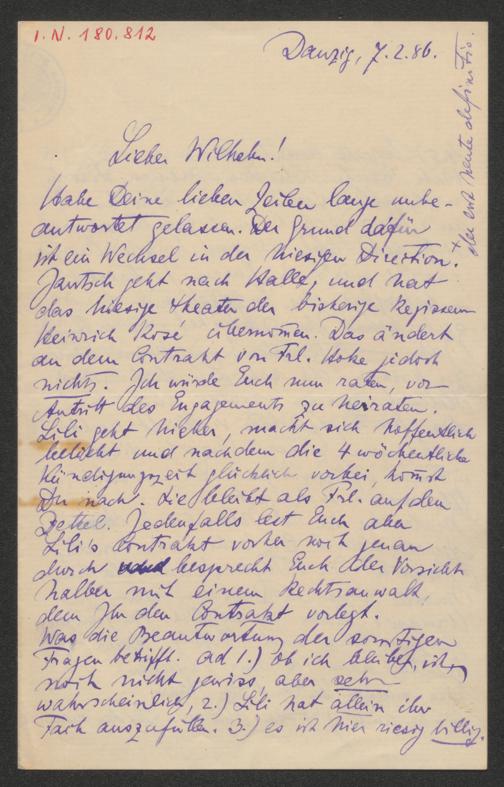 I.N. 180.812
Danzig, 7.2.86.
Lieber Wilhelm!
Habe Deine lieben Zeilen lange unbe-
antwortet gelassen. Der Grund dafür
ist ein Wechsel in der hiesigen Direction.+
Jantsch geht nach Halle, und hat
das hiesige Theater der bisherige Regisseur
Heinrich Rosé übernommen. Das ändert
an dem Contrakt von Frl. Hoke jedoch
nichts. Ich würde Euch nun raten, vor
Antritt des Engagements zu heiraten.
Lili geht hieher, macht sich hoffentlich
beliebt und nachdem die 4 wöchentliche
Kündigungszeit glücklich vorbei, kommst
Du nach. Sie bleibt als Frl. auf dem
Zettel. Jedenfalls lest Euch aber
Lili's Contrakt vorher noch genau
durch besprecht Euch der Vorsicht
halber mit einem Rechtsanwalt,
dem Ihr den Contrakt vorlegt.
Was die Beantwortung der sonstigen
Fragen betrifft. ad 1.) ob ich bleibe, ist
noch nicht gewiss, aber sehr
wahrscheinlich, 2.) Lili hat allein ihr
Fach auszufüllen. 3.) es ist hier riesig billig.
+ der erst heute definitiv.